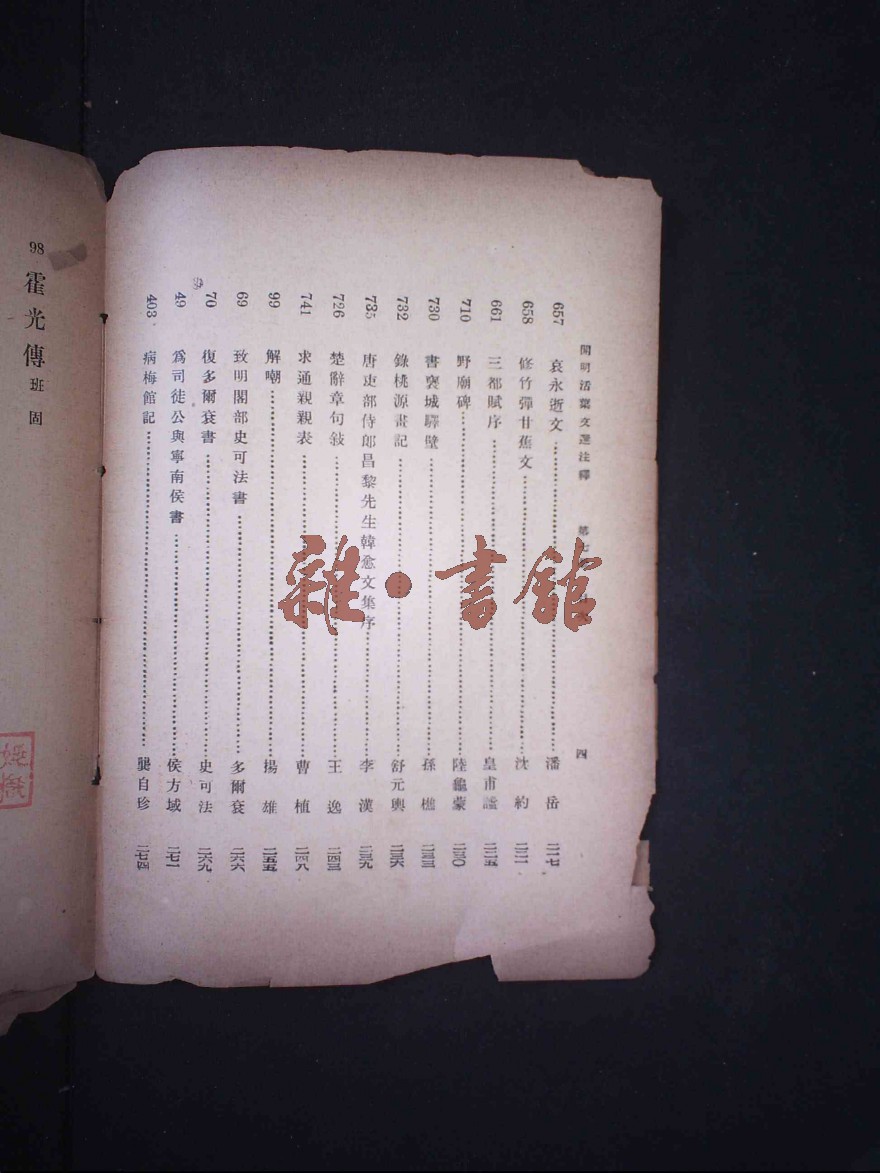 開明活葉文選注釋 第 四
657 哀永逝文 潘岳 二一七
658 修竹彈甘蕉文 沈約 二二一
661 三都賦序 皇甫謐 二二五
710 野廟碑 陸龜蒙 二三〇
730 書褒城驛壁 孫樵 二三三
732 錄桃源畫記 舒元輿 二三六
735 唐吏部侍郎昌黎先生韓愈文集序 李漢 二三九
726 楚辭章句敍 王逸 二四三
741 求通親親表 曹植 二四八
99 解嘲 揚雄 二五五
69 致明閣部史可法書 多爾袞 二六六
70 復多爾袞書 史可法 二六九
49 爲司徒公與寧南侯書 侯方域 二七一
403 病梅館記 龔自珍 二七四
98 霍光傳 班固
雜·書館